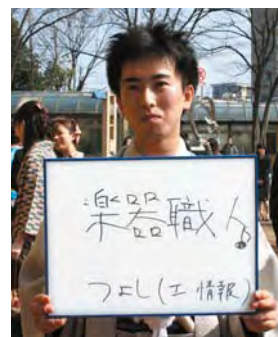 楽器職人!
つよし(工 情報)